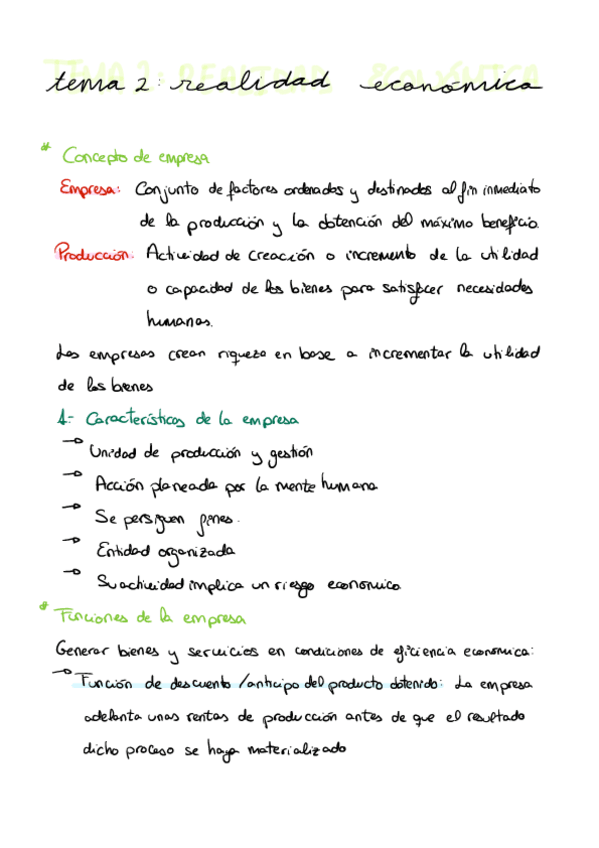 tema 2: realidad económica
* Concepto de empresa
Empresa: Conjunto de factores ordenados y destinados al fin inmediato
de la producción y la obtención del máximo beneficio.
Producción: Actividad de creación o incremento de la utilidad
o capacidad de los bienes para satisfacer necesidades
humanas.
Las empresas crean riqueza en base a incrementar la utilidad
de los bienes
1- Características de la empresa
→ Unidad de producción y gestión
→ Acción planeada por la mente humana
→ Se persiguen fines.
→ Entidad organizada
→ Su actividad implica un riesgo económico.
* Funciones de la empresa
Generar bienes y servicios en condiciones de eficiencia economica:
→ Función de descuento/anticipo del producto obtenido: La empresa
adelanta unas rentas de producción antes de que el resultado
dicho proceso se haya materializado